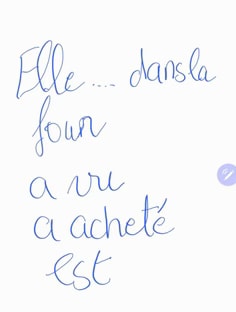 Elle .... dans la
four
a vu
a acheté
est